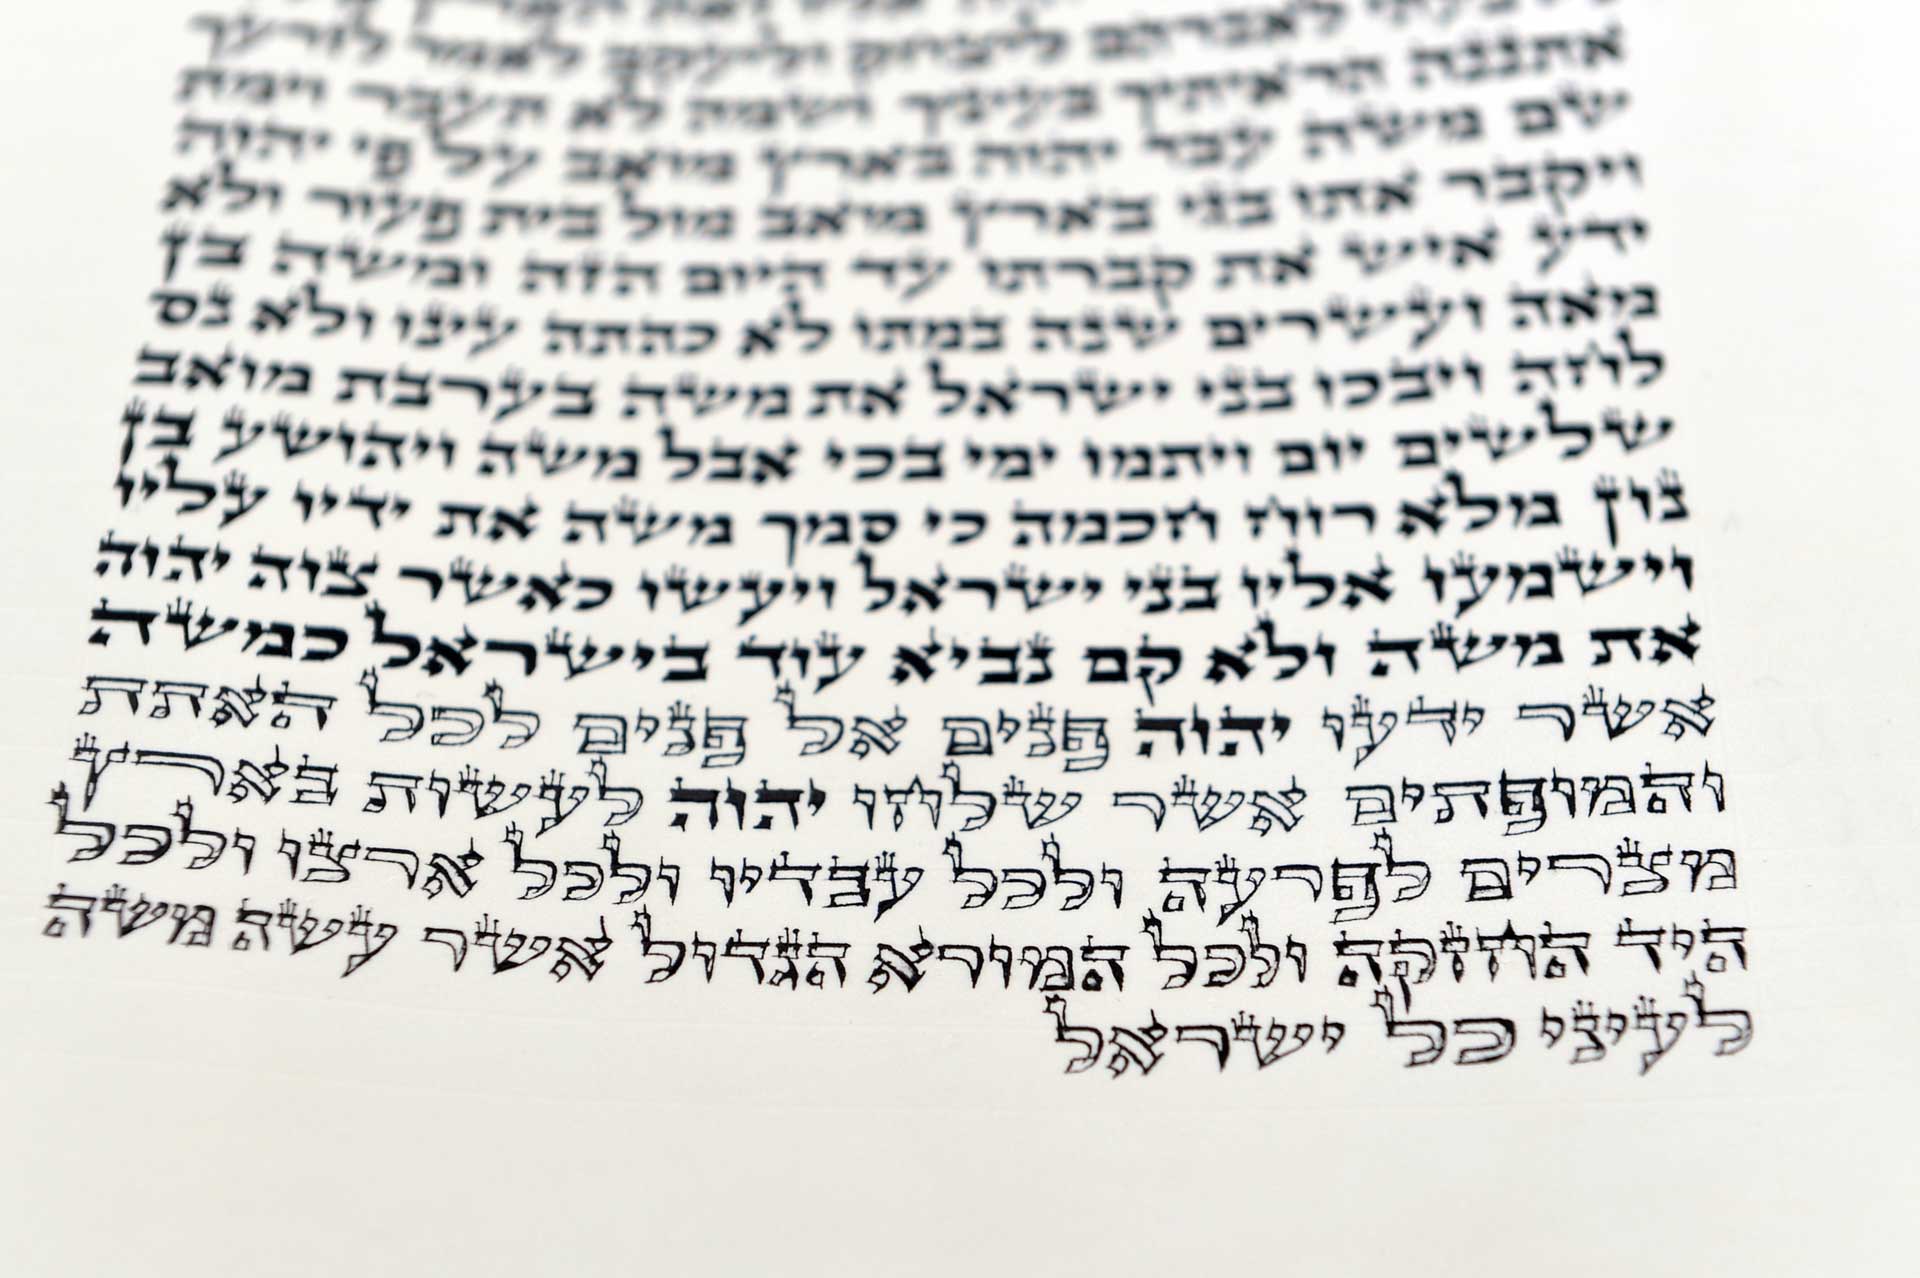 לאברהם ליצחק וליעקב לאמר לזרעך
אתננה הראיתיך בעיניך ושמה לא תעבר וימת
שם משה עבד יהוה בארץ מואב על פי יהוה
ויקבר אתו בגי בארץ מואב מול בית פעור ולא
ידע איש את קברתו עד היום הזה ומשה בן
מאה ועשרים שנה במתו לא כהתה עינו ולא נס
לחה ויבכו בני ישראל את משה בערבת מואב
שלשים יום ויתמו ימי בכי אבל משה ויהושע בן
נון מלא רוח חכמה כי סמך משה את ידיו עליו
וישמעו אליו בני ישראל ויעשו כאשר צוה יהוה
את משה ולא קם נביא עוד בישראל כמשה
אשר ידעו יהוה פנים אל פנים לכל האתת
והמופתים אשר שלחו יהוה לעשות בארץ
מצרים לפרעה ולכל עבדיו ולכל ארצו ולכל
היד החזקה ולכל המורא הגדול אשר עשה משה
לעיני כל ישראל